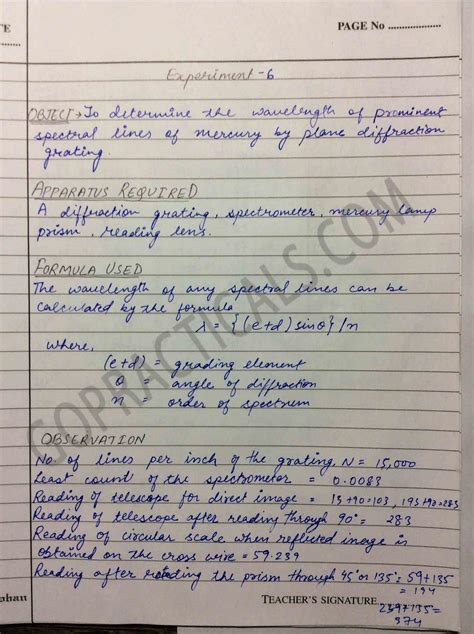 TE
PAGE No
Experiment-6
OBJECT → To determine the wavelength of prominent
spectral lines of mercury by plane diffraction
grating.
APPARATUS REQUIRED
A diffraction grating, spectrometer, mercury lamp
prism, reading lens.
FORMULA USED
The wavelength of any spectral lines can be
calculated by the formula
λ = {(e+d) sinθ}/n
where,
(e+d) = grading element
θ = angle of diffraction
n = order of spectrum
GOPRACTICALS.COM
OBSERVATION
No of lines per inch of the grating, N = 15,000
Least count of the spectrometer = 0.0083
Reading of telescope for direct image = 13+90=103, 193+90=283
Reading of telescope after reading through 90° = 283
Reading of circular scale when reflected image is
obtained on the cross wire = 59.239
Reading after rotating the prism through 45° or 135° = 59+135
= 194
TEACHER'S SIGNATURE
239+135=
374